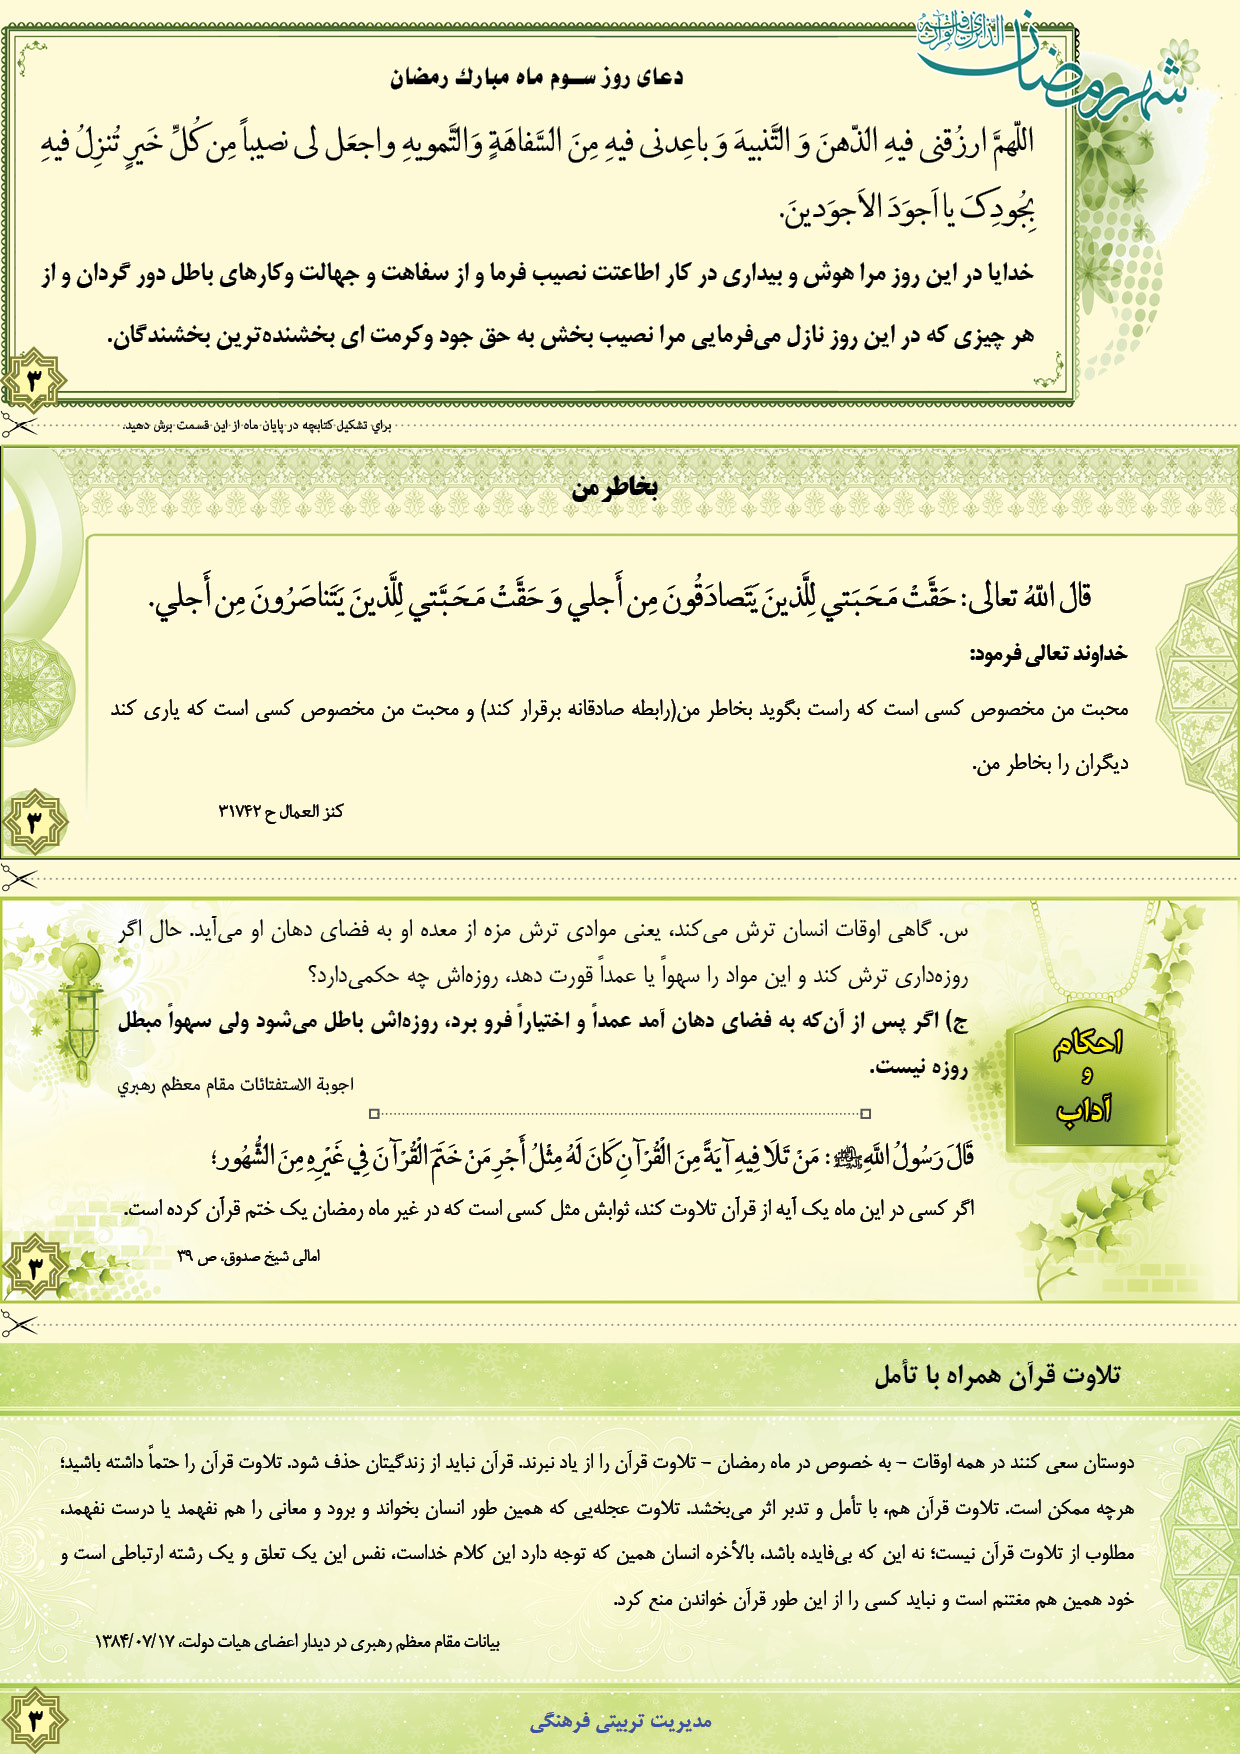 شهر رمضان الذی انزل فیه القرآن
دعای روز سـوم ماه مبارك رمضان
اللّهمَّ ارزُقنی فیهِ الذّهنَ وَ التَّنبیهَ وَ باعِدنی فیهِ مِنَ السَّفاهَةِ وَالتَّمویهِ واجعَل لی نصیباً مِن کُلِّ خَیرٍ تُنزِلُ فیهِ
بِجُودِکَ یا اَجوَدَ الاَجوَدینَ.
خدایا در این روز مرا هوش و بیداری در کار اطاعتت نصیب فرما و از سفاهت و جهالت وکارهای باطل دور گردان و از
هر چیزی که در این روز نازل می‌فرمایی مرا نصیب بخش به حق جود وکرمت ای بخشنده‌ترین بخشندگان.
۳
براي تشکیل کتابچه در پایان ماه از این قسمت برش دهید.
بخاطر من
قالَ اللّهُ تعالی: حَقَّتْ مَحَبَتي لِلَّذينَ يَتَصادَقُونَ مِن أَجلي وَ حَقَّتْ مَحَبَّتي لِلَّذينَ يَتَناصَرُونَ مِن أَجلي.
خداوند تعالی فرمود:
محبت من مخصوص کسی است که راست بگوید بخاطر من(رابطه صادقانه برقرار کند) و محبت من مخصوص کسی است که یاری کند
دیگران را بخاطر من.
کنز العمال ح ۳۱۷۴۲
۳
س. گاهی اوقات انسان ترش می‌کند، یعنی موادی ترش مزه از معده او به فضای دهان او می‌آید. حال اگر
روزه‌داری ترش کند و این مواد را سهواً یا عمداً قورت دهد، روزه‌اش چه حکمی‌دارد؟
ج) اگر پس از آن‌که به فضای دهان آمد عمداً و اختیاراً فرو برد، روزه‌اش باطل می‌شود ولی سهواً مبطل
روزه نیست.
اجوبة الاستفتائات مقام معظم رهبري
احکام
و
آداب
قَالَ رَسُولُ اللَّهِ ﷺ: مَنْ تَلَا فِيهِ آيَةً مِنَ الْقُرْآنِ كَانَ لَهُ مِثْلُ أَجْرِ مَنْ خَتَمَ الْقُرْآنَ فِي غَيْرِهِ مِنَ الشُّهُور؛
اگر کسی در این ماه یک آیه از قرآن تلاوت کند، ثوابش مثل کسی است که در غیر ماه رمضان یک ختم قرآن کرده است.
امالی شیخ صدوق، ص ۳۹
۳
تلاوت قرآن همراه با تأمل
دوستان سعی کنند در همه اوقات - به خصوص در ماه رمضان - تلاوت قرآن را از یاد نبرند. قرآن نباید از زندگیتان حذف شود. تلاوت قرآن را حتماً داشته باشید؛
هرچه ممکن است. تلاوت قرآن هم، با تأمل و تدبر اثر می‌بخشد. تلاوت عجله‌یی که همین طور انسان بخواند و برود و معانی را هم نفهمد یا درست نفهمد،
مطلوب از تلاوت قرآن نیست؛ نه این که بی‌فایده باشد، بالأخره انسان همین که توجه دارد این کلام خداست، نفس این یک تعلق و یک رشته ارتباطی است و
خود همین هم مغتنم است و نباید کسی را از این طور قرآن خواندن منع کرد.
بیانات مقام معظم رهبری در دیدار اعضای هیات دولت، ۱۳۸۴/۰۷/۱۷
۳
مدیریت تربیتی فرهنگی